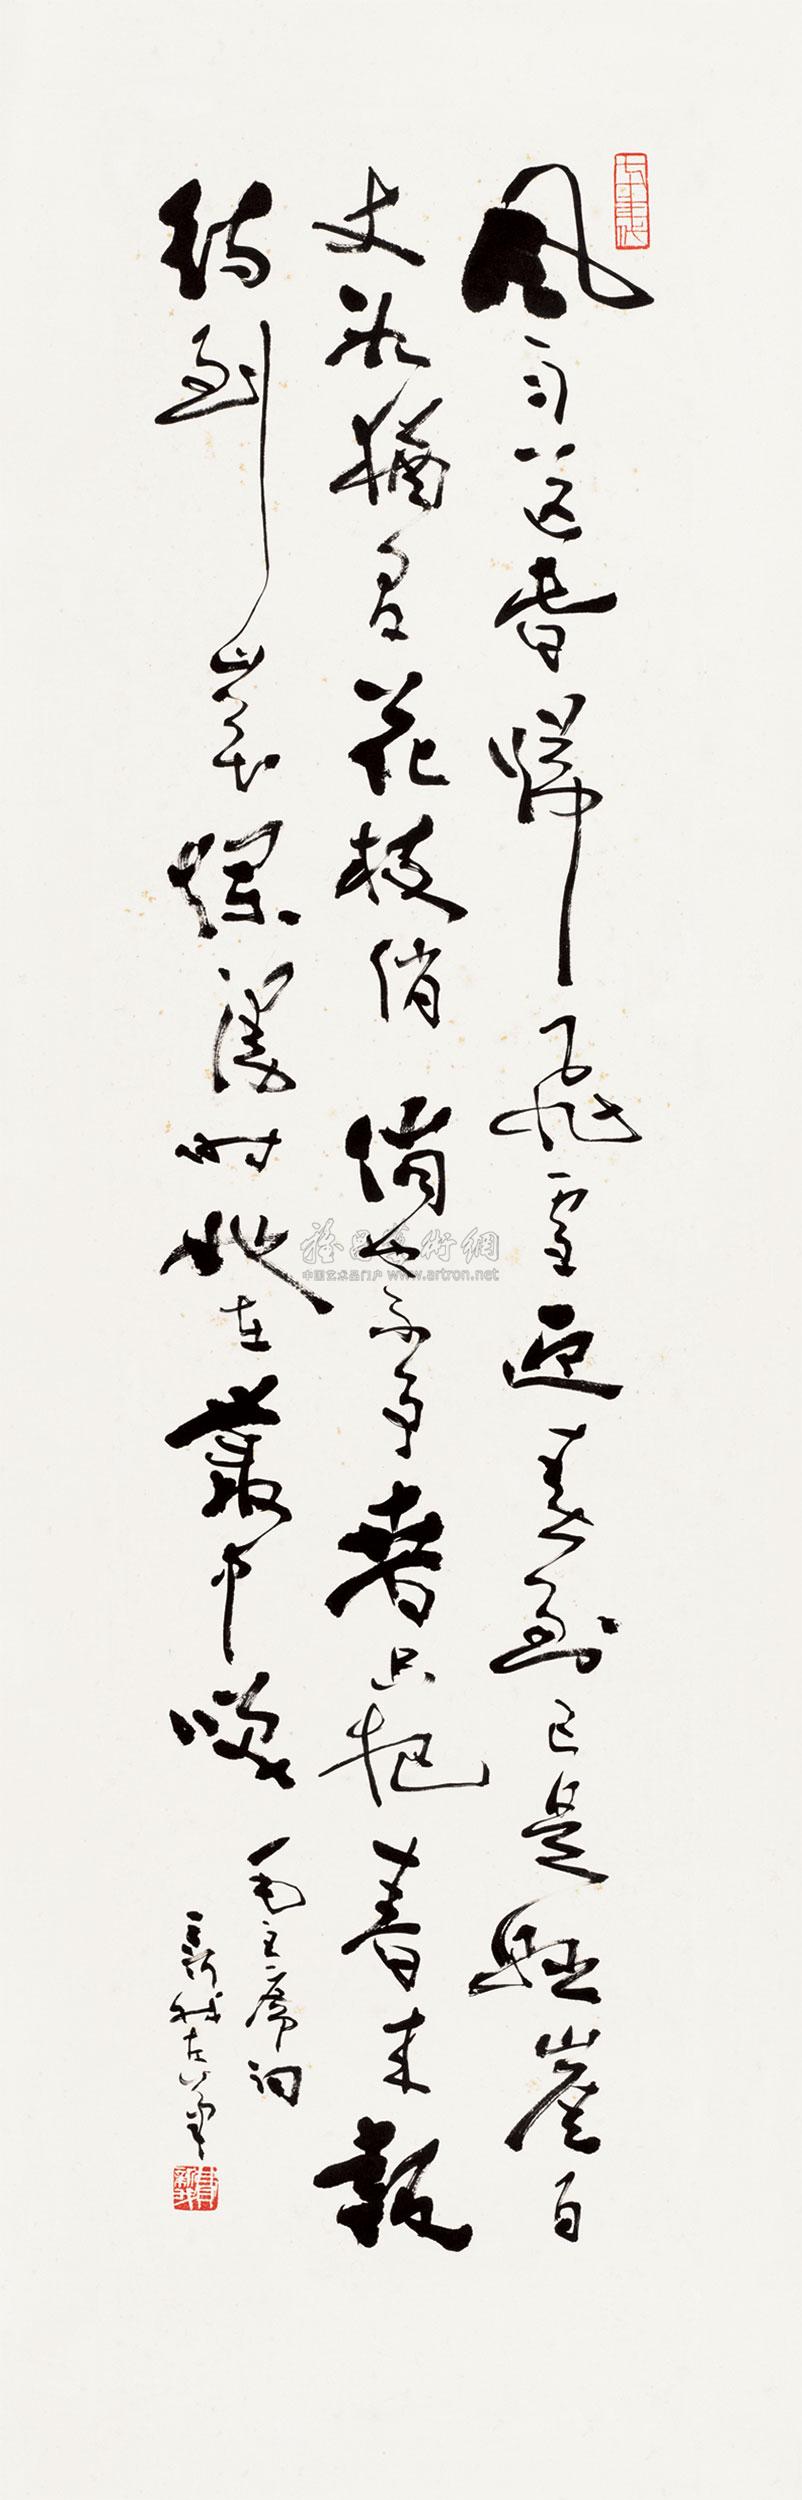 風雨送春歸飛雪迎春到已是懸崖百
丈冰猶有花枝俏俏也不争春只把春来報
待到山花爛漫時她在叢中笑
毛主席词
新我左筆
雅昌藝術網
中国艺术品门户 www.artron.net